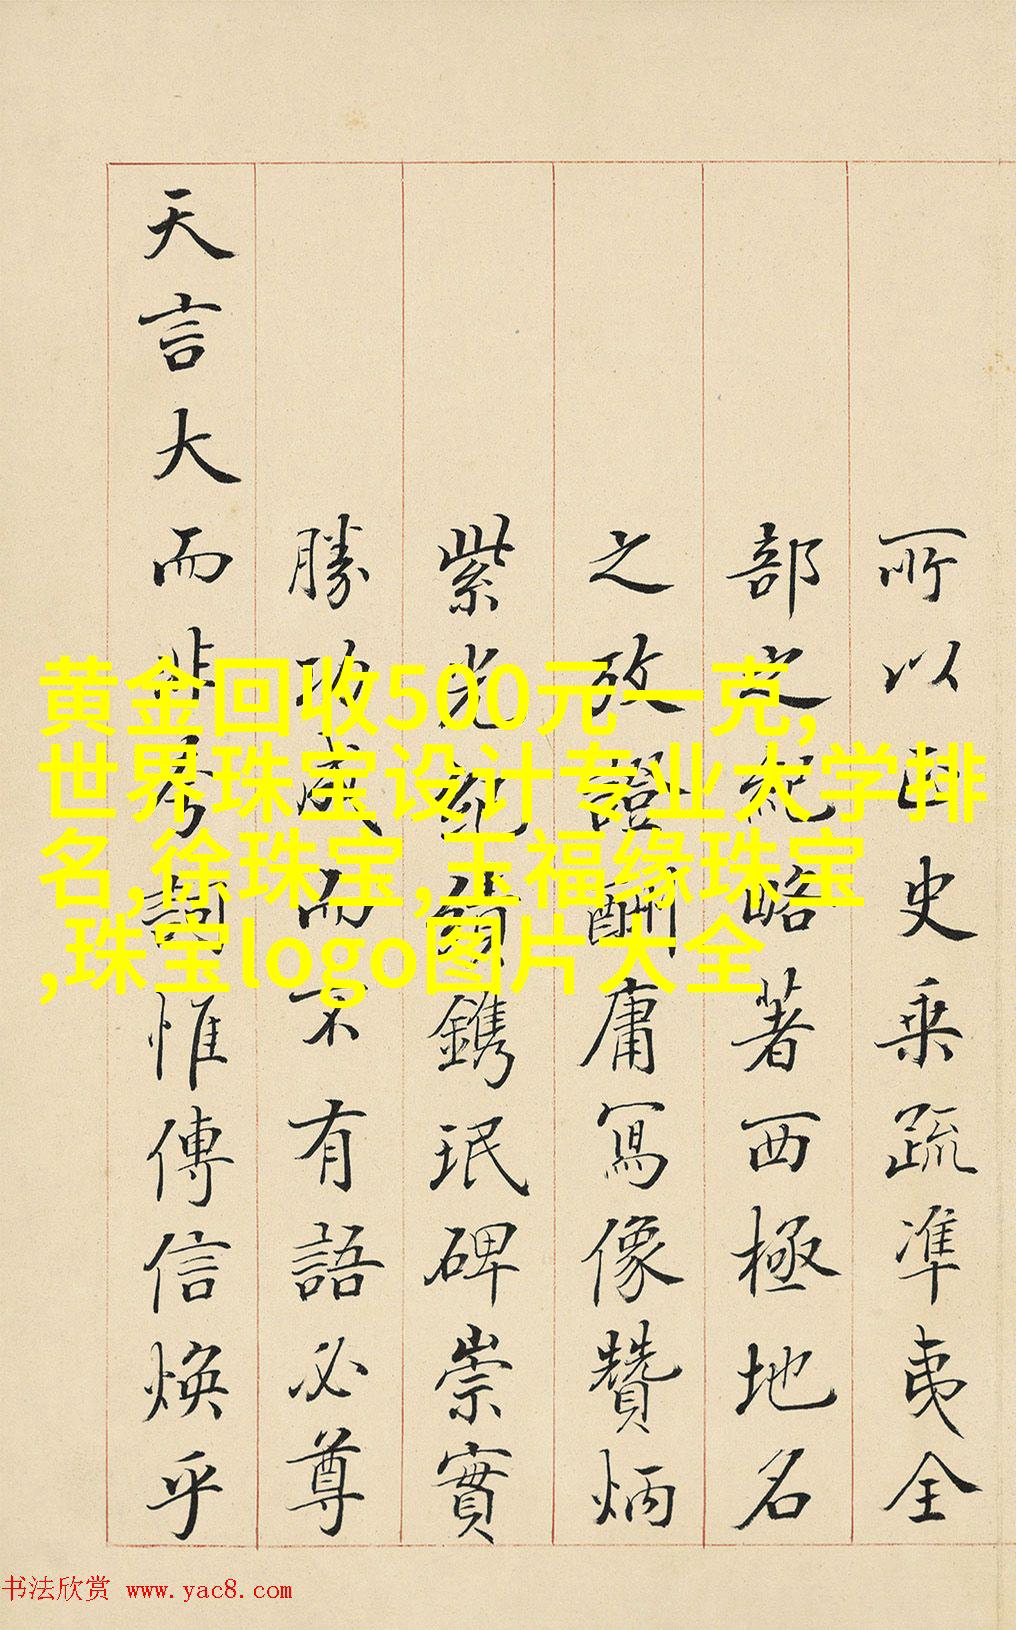 所以史乘疏準夷全
部之紀略著西極地名
之攷證酬庸寫像贊炳
紫光鐫珉碑崇實
勝功成而不有語必尊
天言大而非夸詞惟傳信煥乎
黄金回收500元一克,
世界珠宝设计专业大学排
名,徐珠宝,玉福缘珠宝
,珠宝logo图片大全
书法欣赏 www.yac8.com